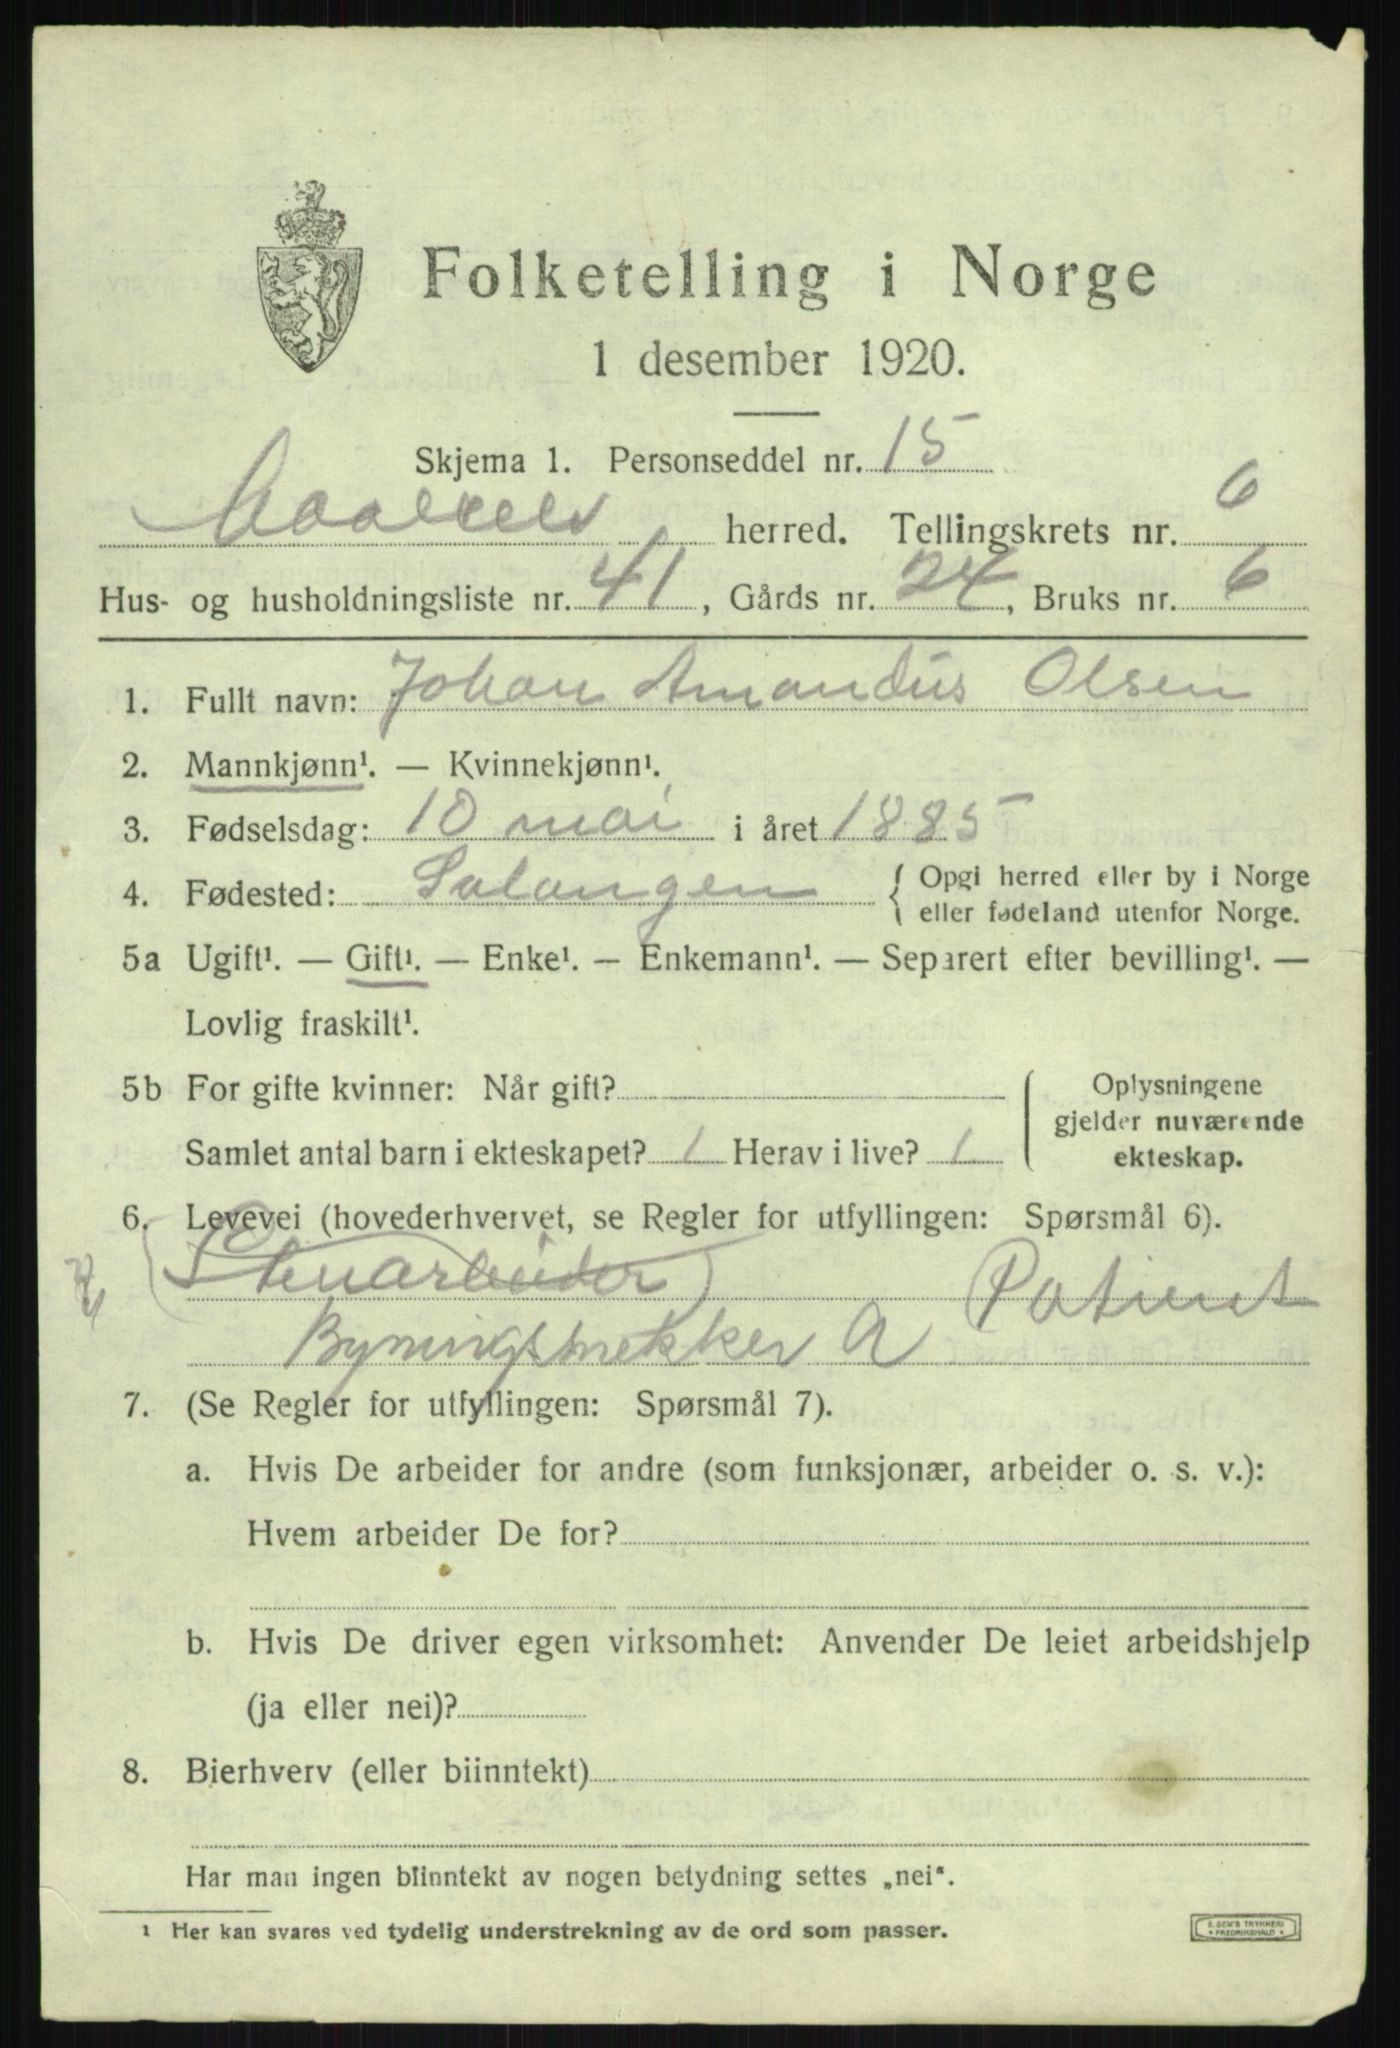 Folketelling i Norge
1 desember 1920.
Skjema 1. Personseddel nr. 15
herred. Tellingskrets nr. 6
Hus- og husholdningsliste nr. 41, Gårds nr. 24, Bruks nr. 6
1. Fullt navn: Johan Amandus Olsen
2. Mannkjønn¹. — Kvinnekjønn¹.
3. Fødselsdag: 10 mai i året 1885
4. Fødested: Salangen { Opgi herred eller by i Norge
eller fødeland utenfor Norge.
5a Ugift¹. — Gift¹. — Enke¹. — Enkemann¹. — Separert efter bevilling¹. —
Lovlig fraskilt¹.
5b For gifte kvinner: Når gift?
Samlet antal barn i ekteskapet? 1 Herav i live? 1
Oplysningene
gjelder nuværende
ekteskap.
6. Levevei (hovederhvervet, se Regler for utfyllingen: Spørsmål 6).
Stenarbeider Patient
A
7. (Se Regler for utfyllingen: Spørsmål 7).
a. Hvis De arbeider for andre (som funksjonær, arbeider o. s. v.):
Hvem arbeider De for?
b. Hvis De driver egen virksomhet: Anvender De leiet arbeidshjelp
(ja eller nei)?
8. Bierhverv (eller biinntekt)
Har man ingen biinntekt av nogen betydning settes „nei“.
¹ Her kan svares ved tydelig understrekning av de ord som passer.
E. SEM'S TRYKKERI
* FREDRIKSHALD *